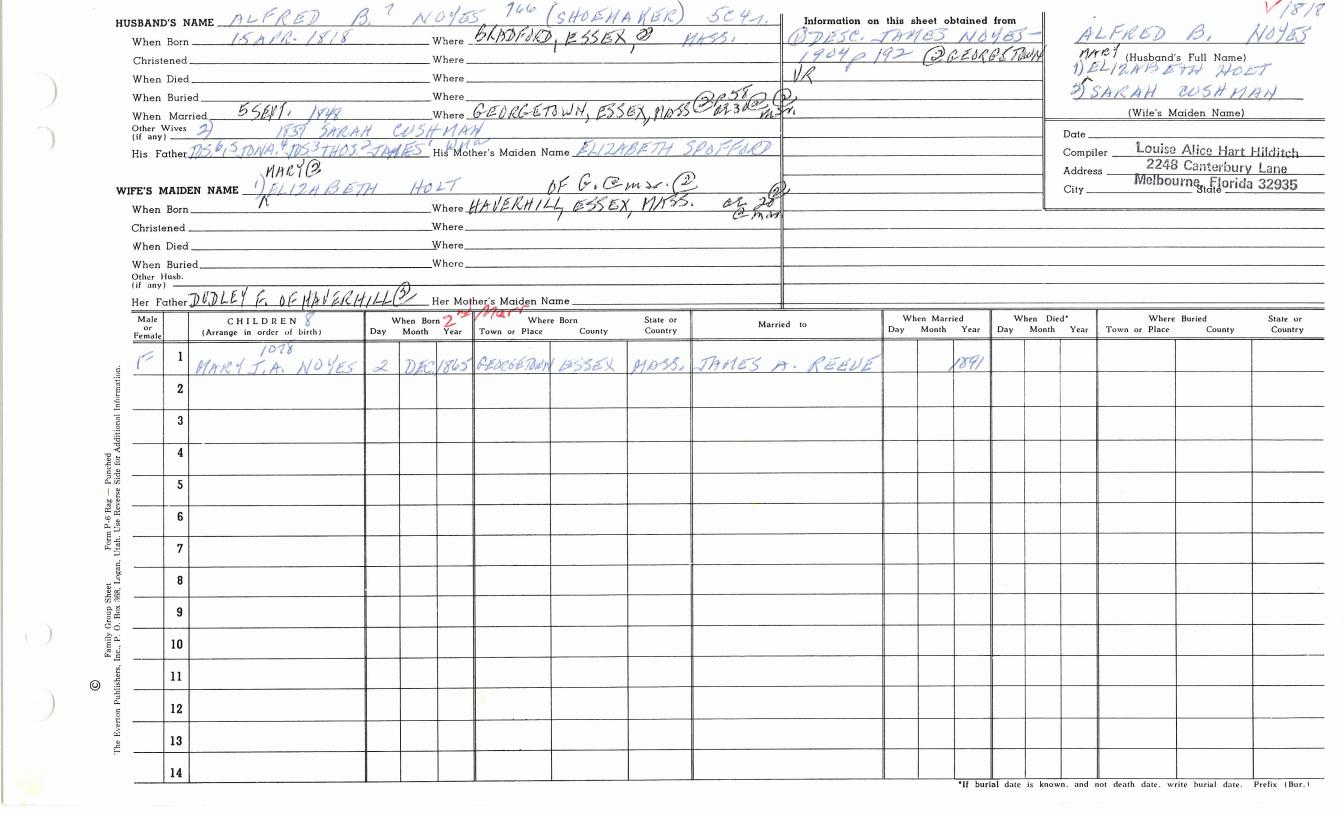 HUSBAND'S NAME ALFRED B.7 NOYES 766 (SHOEMAKER)
When Born 15 APR. 1818 Where BRADFORD, ESSEX, MASS.
Christened Where
When Died Where
When Buried Where
When Married 5 SEPT. 1848 Where GEORGETOWN, ESSEX, MASS
Other Wives (if any) 2) SARAH CUSHMAN
His Father JONA.4 THOS2 JAMES1 His Mother's Maiden Name ELIZABETH SPOFFORD
MARY ②
WIFE'S MAIDEN NAME 1) ELIZABETH HOLT OF G. @ mar. ②
When Born Where HAVERHILL, ESSEX, MASS.
Christened Where
When Died Where
When Buried Where
Other Husb. (if any)
Her Father DUDLEY F. OF HAVERHILL ② Her Mother's Maiden Name
Information on this sheet obtained from
① DESC. JAMES NOYES-
1904 p 192 ② GEORGETOWN
VR
1818
ALFRED B. NOYES
(Husband's Full Name)
MARY
1) ELIZABETH HOLT
2) SARAH CUSHMAN
(Wife's Maiden Name)
Date
Compiler Louise Alice Hart Hilditch
Address 2248 Canterbury Lane
City State Melbourne, Florida 32935
Male or Female
CHILDREN 8
(Arrange in order of birth)
When Born Day Month Year
2nd Marr
Where Born Town or Place County State or Country
Married to
When Married Day Month Year
When Died* Day Month Year
Where Buried Town or Place County State or Country
1078
F 1 MARY J.A. NOYES 2 DEC 1865 GEORGETOWN ESSEX MASS. JAMES A. REEVE 1891
2
3
4
5
6
7
8
9
10
11
12
13
14
*If burial date is known, and not death date, write burial date. Prefix (Bur.)
Family Group Sheet Form P-6 Rag — Punched
© The Everton Publishers, Inc., P. O. Box 368, Logan, Utah. Use Reverse Side for Additional Information.